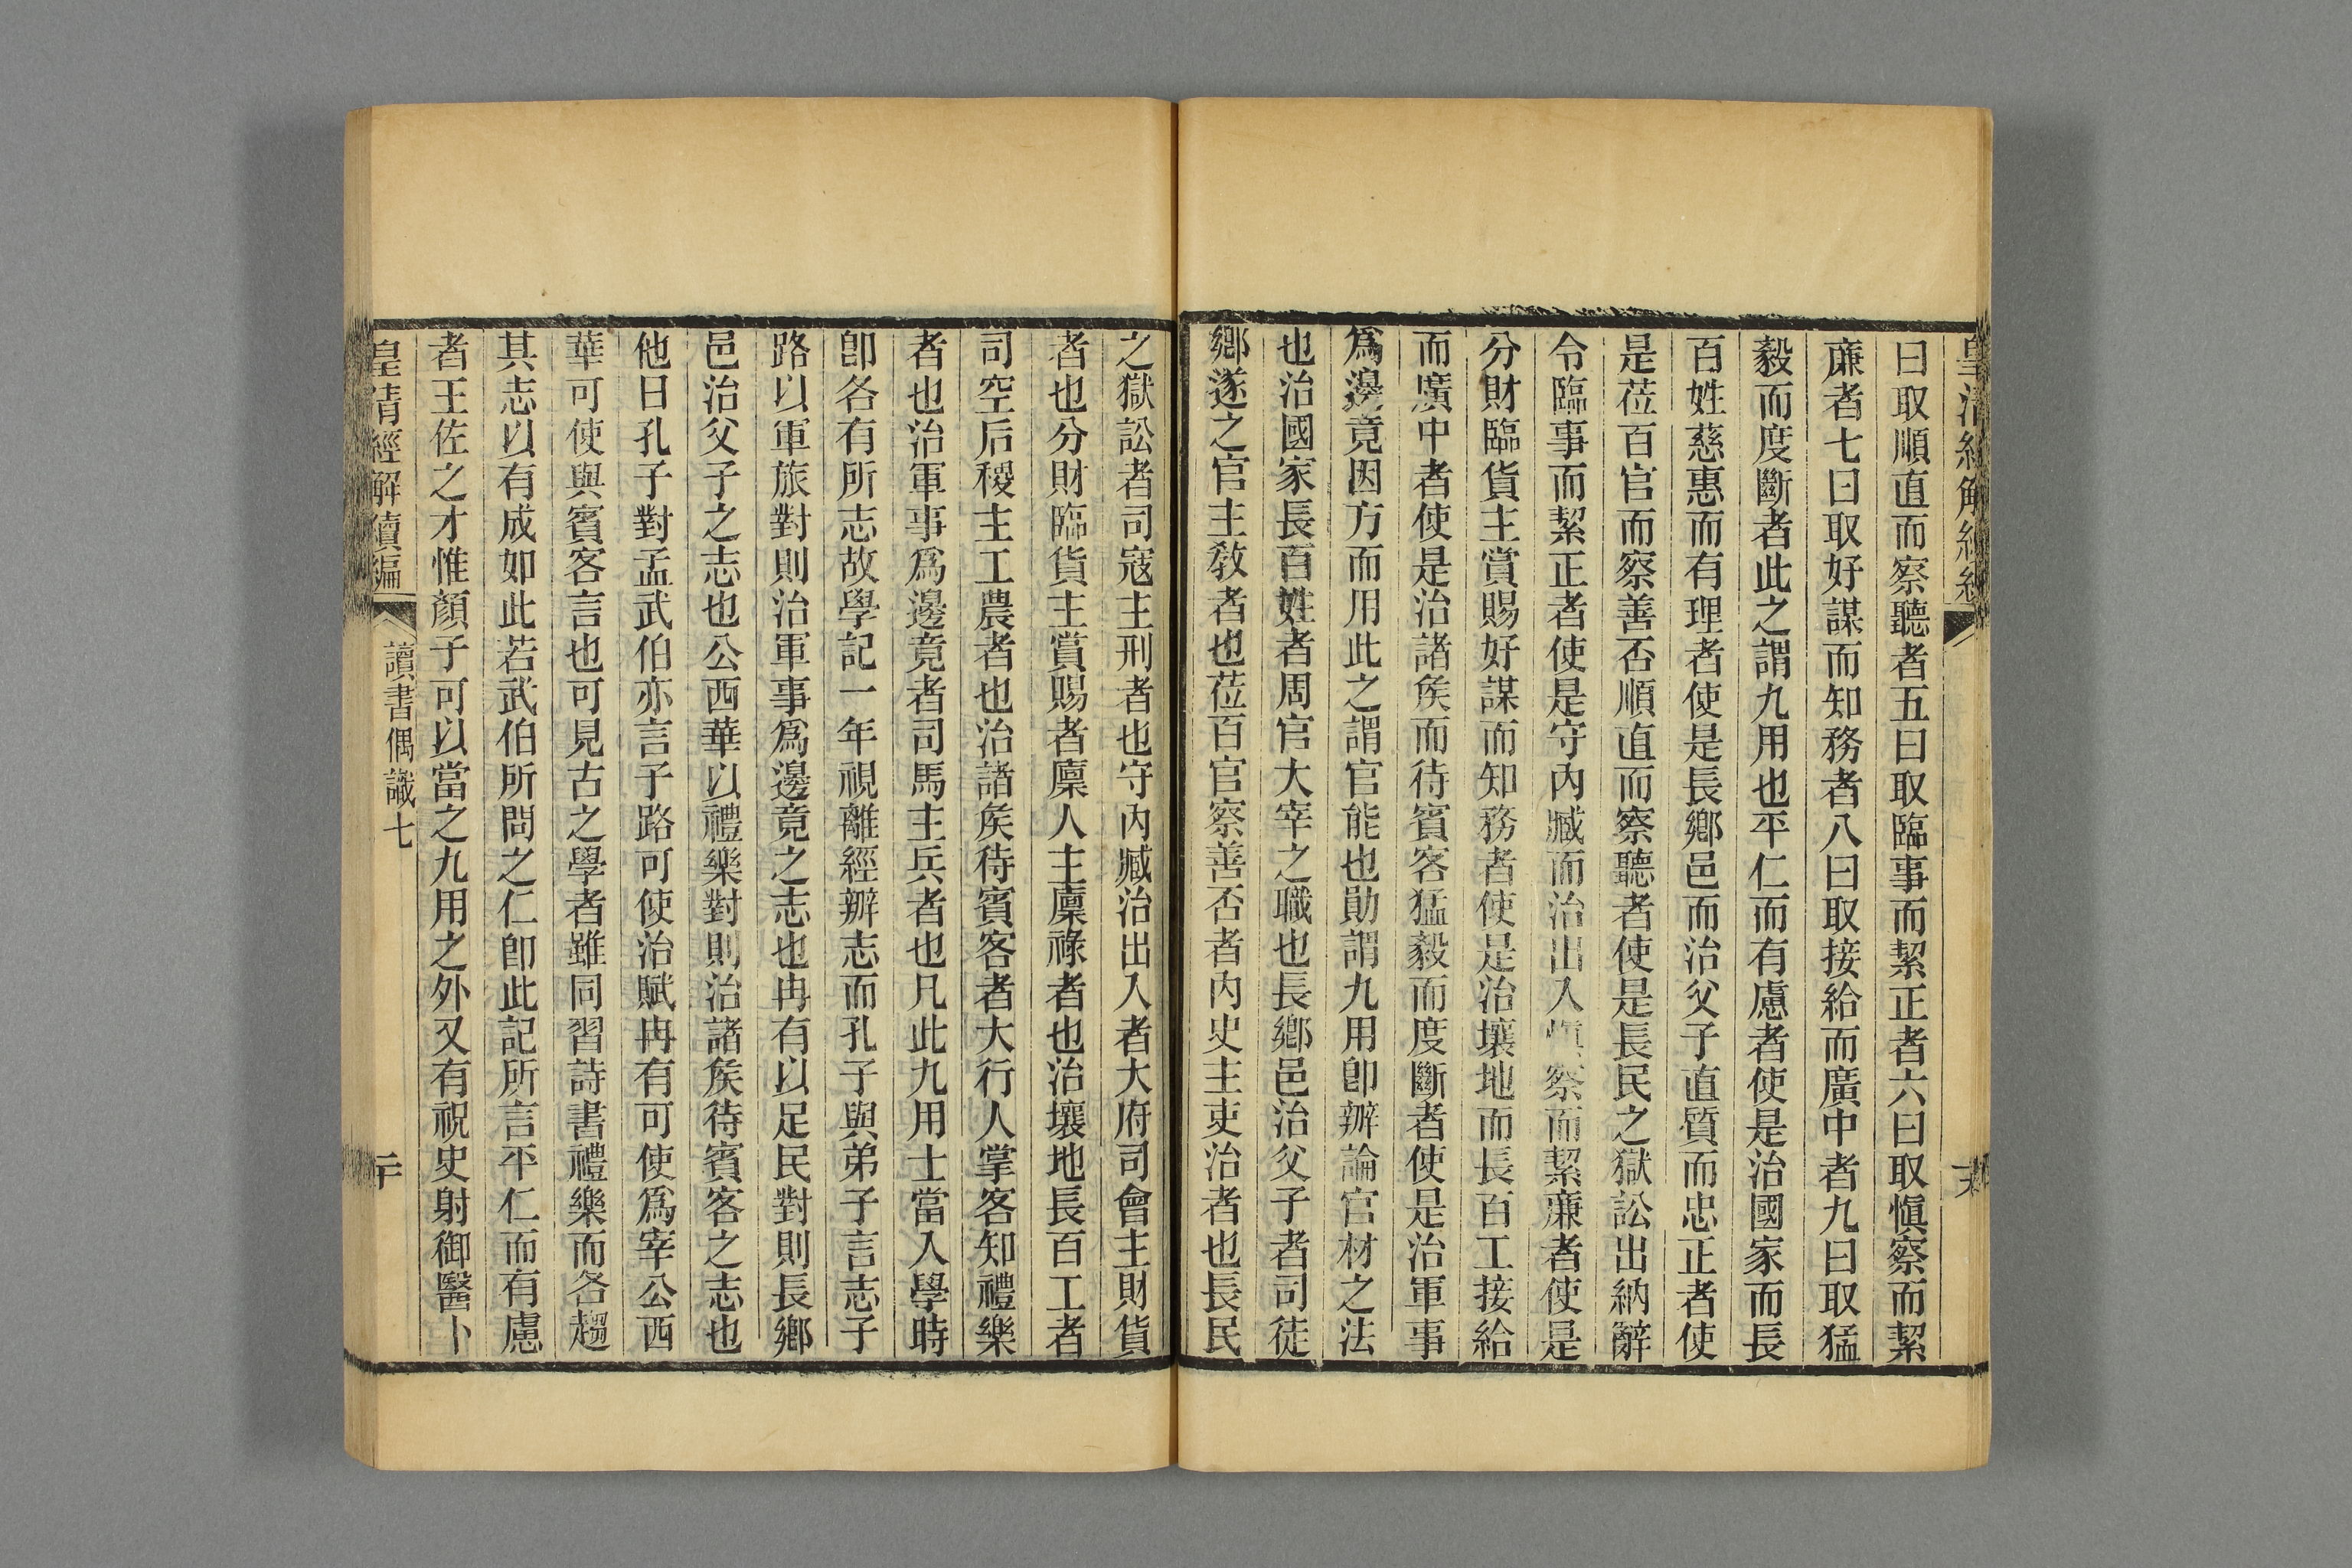 皇清經解續編
曰取順直而察聽者五曰取臨事而絜正者六曰取愼察而絜
廉者七曰取好謀而知務者八曰取接給而廣中者九曰取猛
毅而度斷者此之謂九用也平仁而有慮者使是治國家而長
百姓慈惠而有理者使是長鄉邑而治父子直質而忠正者使
是莅百官而察善否順直而察聽者使是長民之獄訟出納辭
令臨事而絜正者使是守內臧而治出入愼察而絜廉者使是
分財臨貨主賞賜好謀而知務者使是治壤地而長百工接給
而廣中者使是治諸矦而待賓客猛毅而度斷者使是治軍事
爲邊竟因方而用此之謂官能也勛謂九用卽辦論官材之法
也治國家長百姓者周官大宰之職也長鄉邑治父子者司徒
鄉遂之官主敎者也莅百官察善否者內史主吏治者也長民
之獄訟者司寇主刑者也守內臧治出入者大府司會主財貨
者也分財臨貨主賞賜者廩人主廩祿者也治壤地長百工者
司空后稷主工農者也治諸矦待賓客者大行人掌客知禮樂
者也治軍事爲邊竟者司馬主兵者也凡此九用士當入學時
卽各有所志故學記一年視離經辦志而孔子與弟子言志子
路以軍旅對則治軍事爲邊竟之志也冉有以足民對則長鄉
邑治父子之志也公西華以禮樂對則治諸矦待賓客之志也
他日孔子對孟武伯亦言子路可使治賦冉有可使爲宰公西
華可使與賓客言也可見古之學者雖同習詩書禮樂而各趨
其志以有成如此若武伯所問之仁卽此記所言平仁而有慮
者王佐之才惟顏子可以當之九用之外又有祝史射御醫卜
皇清經解續編 讀書偶識七 二十